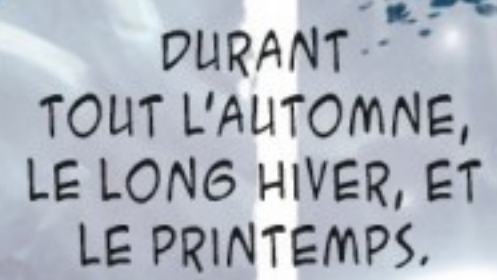 DURANT
TOUT L'AUTOMNE,
LE LONG HIVER, ET
LE PRINTEMPS.